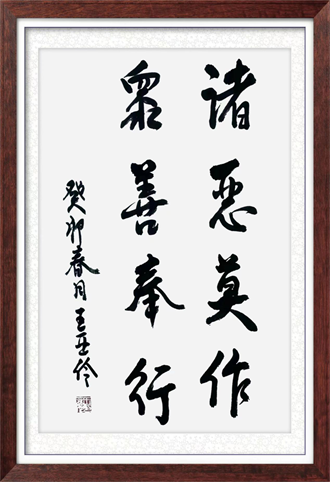 诸恶莫作
众善奉行
癸卯春月王亚伶